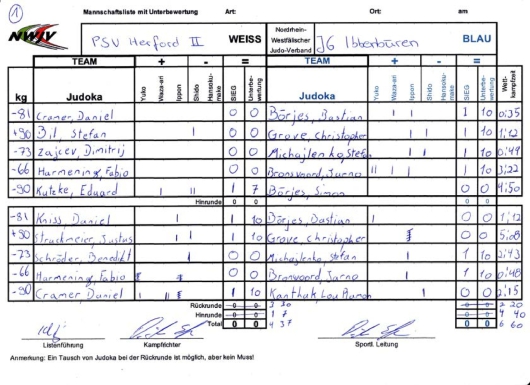 1
Mannschaftsliste mit Unterbewertung Art: Ort: am
NWJV PSV Herford II WEISS Nordrhein-Westfälischer Judo-Verband JG Ibbenbüren BLAU
TEAM + - = TEAM + - =
kg Judoka Yuko Waza-ari Ippon Shido Hansoku-make SIEG Unterbe-wertung Judoka Yuko Waza-ari Ippon Shido Hansoku-make SIEG Unterbe-wertung Wett-kampfzeit
-81 Cramer, Daniel 0 0 Börjes, Bastian 1 10 0:35
+90 Bil, Stefan 0 0 Grove, Christopher 1 10 1:12
-73 Zajcev, Dimitrij 0 0 Michajlenko, Stefan 1 10 0:49
-66 Harmening, Fabio 0 0 Bronswoord, Jarno 1 10 3:22
-90 Kutzke, Eduard 1 7 Börjes, Simon 0 0 4:50
Hinrunde 0 0 0 0
-81 Kniss, Daniel 1 10 Börjes, Bastian 0 0 1:12
+90 Struckmeier, Justus 1 10 Grove, Christopher 0 0 5:08
-73 Schröder, Benedikt 0 0 Michajlenko, Stefan 1 10 2:43
-66 Harmening, Fabio 0 0 Jarno 1 10 0:48
-90 Cramer, Daniel 1 10 Kanthak, 0 0 2:15
Rückrunde 0 0 3 30 0 0 2 20
Hinrunde 0 0 1 7 0 0 4 40
Total 0 0 4 37 0 0 6 60
Listenführung Kampfrichter Sportl. Leitung
Anmerkung: Ein Tausch von Judoka bei der Rückrunde ist möglich, aber kein Muss!